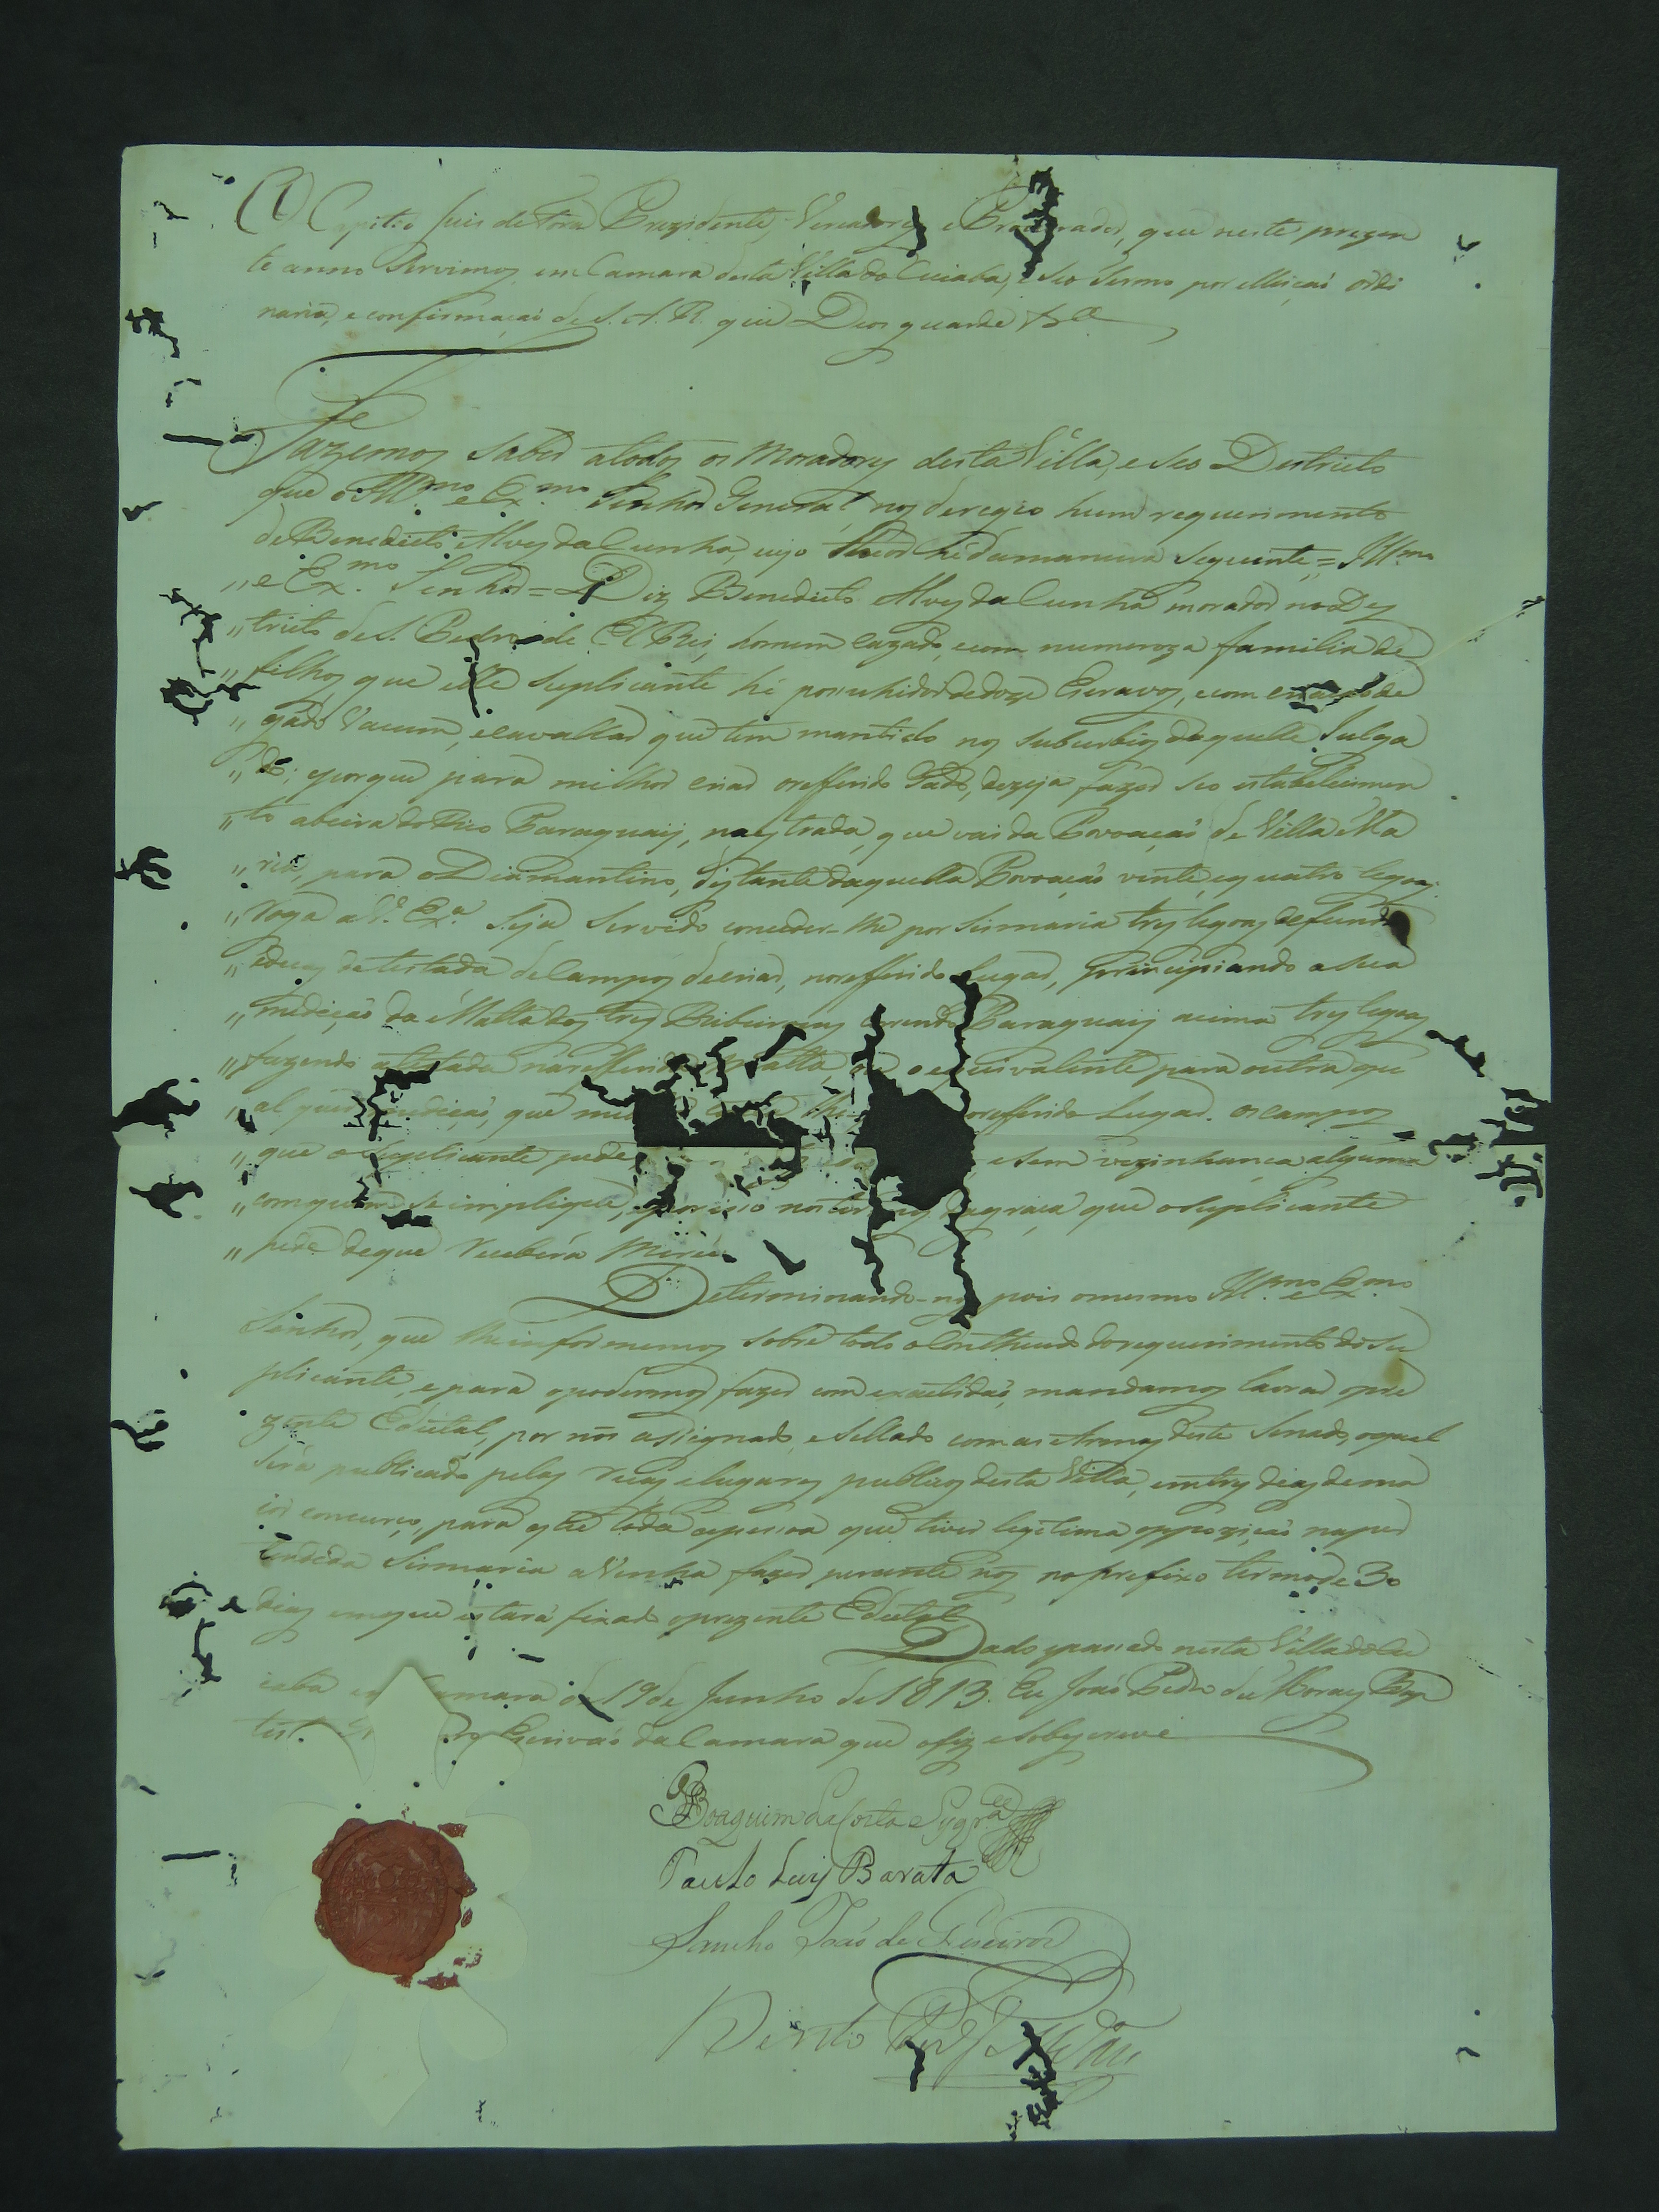 O Capitão Juis de Fora Prezidente, Vereadores e Procurador, que neste prezen
te anno Servimos em Camara desta Villa do Cuiaba, e seo termo por elleiçaõ ordi
naria, e confirmaçaõ de S. A. R. que Deos guarde &ª
Fazemos saber atodos os Moradores desta Villa, e seo Destricto
que o Ill.mo e Ex.mo Senhor General nos deregeo hum requerimento
de Benedicto Alves da Cunha, cujo theor he damaneira seguinte = Ill.mo
" e Ex.mo Senhor = Diz Benedicto Alves da Cunha morador no Des
" tricto de S. Pedro de El Rei, homem cazado, ecom numeroza familia de
" filhos que elle suplicante hé possuhidor dedoze Escravos, ecom de
" gado Vacum, ecavallar que tem mantido nos suburbios daquelle Julga
" do; eporque para milhor criar oreferido Gado, dezeja fazer seo estabelecimen
" to abeira do Rio Paraguaij, naestrada, que vai da Povoaçaõ de Villa Ma
" ria, para o Diamantino, distante daquella Povoaçaõ vinte, equatro legoas.
" Roga a V. Ex.a seja servido conceder-lhe por Sismaria tres legoas defundo
" eduas detestada de Campos decriar, noreferido Lugar, principiando asua
" mediçaõ da Matta dos tres Paraguaij acima tres legoas
" fazendo atestada nareferida Matta, o equivalente para outra qu
" al quer mediçaõ, que oreferido Lugar. os campos
" que o Suplicante pede esem vezinhança alguma
" comquem se implique, porisso agraça que osuplicante
" pede deque receberá Merce
Determinando-nos pois omesmo Ill.mo e Ex.mo
Senhor, que lhe informemos sobre todo oContheudo dorequerimento do Su
plicante, epara opodermos fazer com exactidaõ, mandamos lavrar opre
zente Edital, por nós assignado, esellado comas Armas deste Senado, oqual
será publicado pelas ruas elugares publicos desta Villa, emtres dias dema
ior concurso, para que toda apessoa que tiver legitima oppoziçaõ naper
tendida Sismaria a Venha fazer perante nós noprefixo termode 30
dias emque estará fixado oprezente Edital
Dado epassado nesta Villa do Cu
iaba em Camara de 19 de Junho de 1813. Eu Joaõ Pedro de Moraes
Escrivaõ da Camara que ofiz esobscrevi
Joaquim da Costa e Syqr.a
Paulo Luis Barata
Sancho Joaõ de Queiroz
Bento